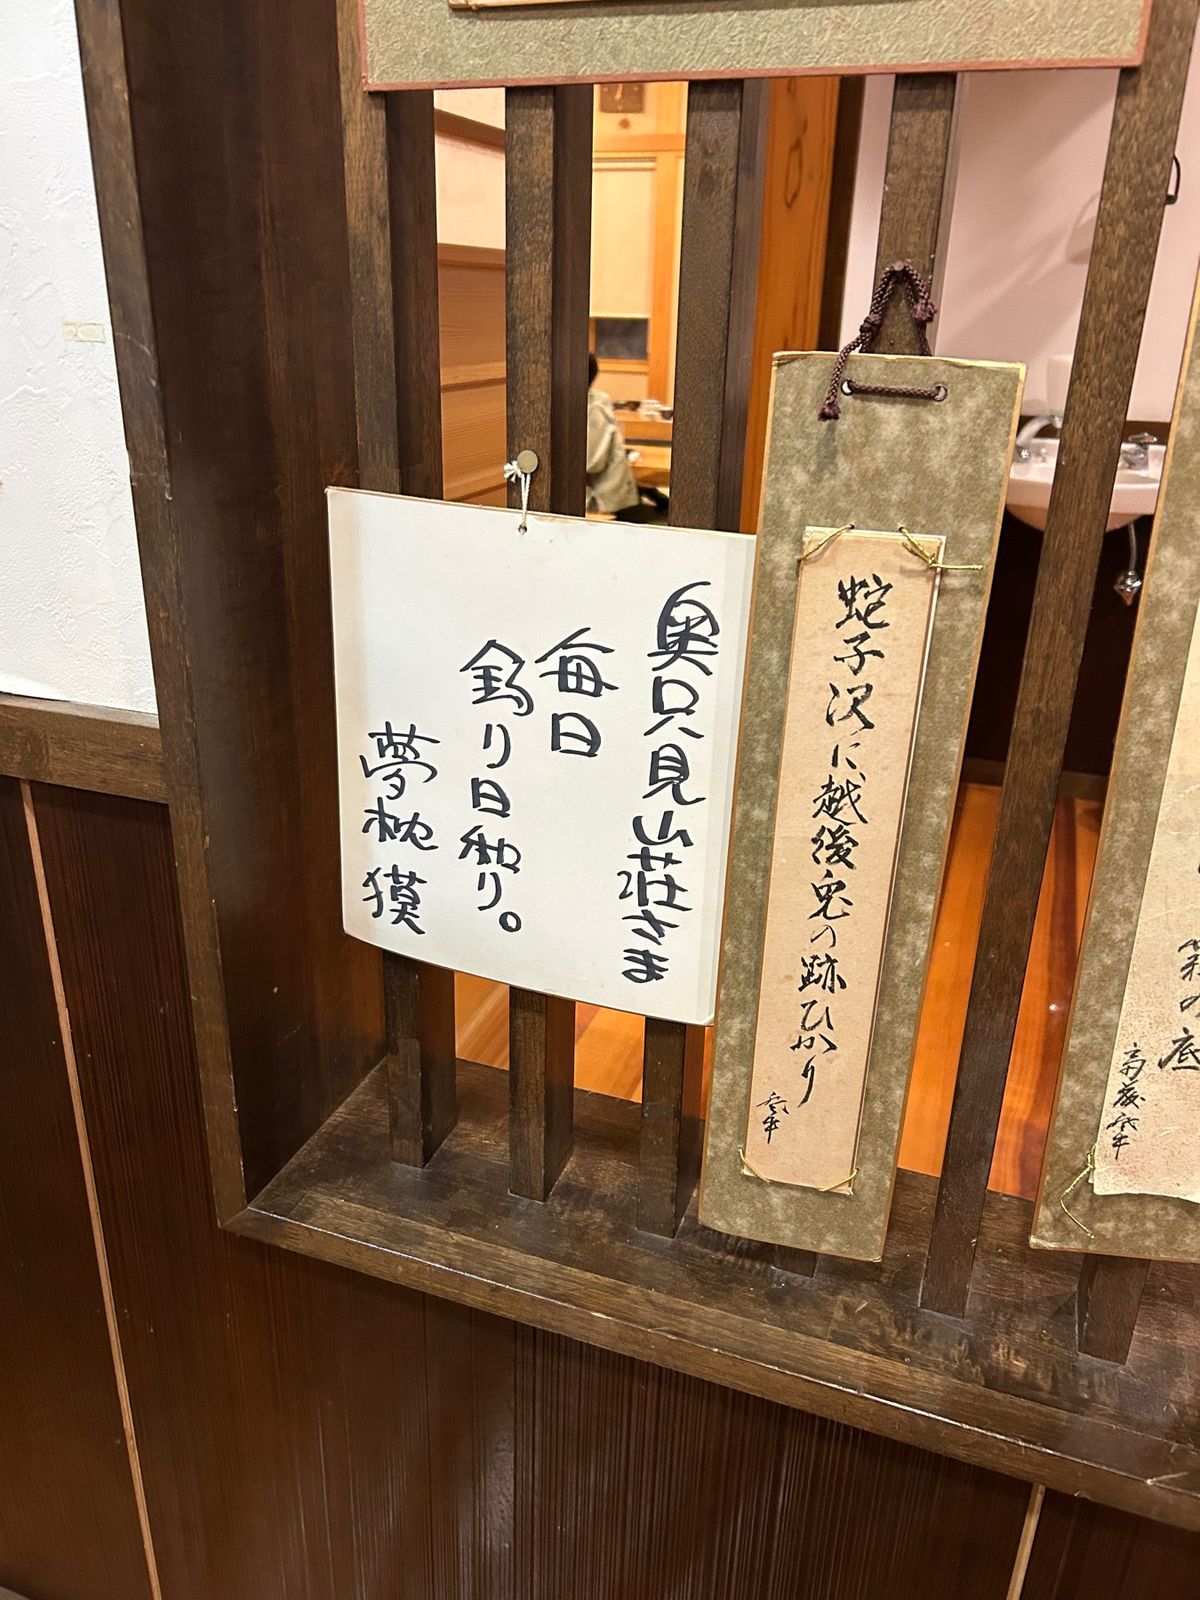 奥只見山荘さま
毎日
釣り日和り。
夢枕獏
蛇子沢に越後兎の跡ひかり